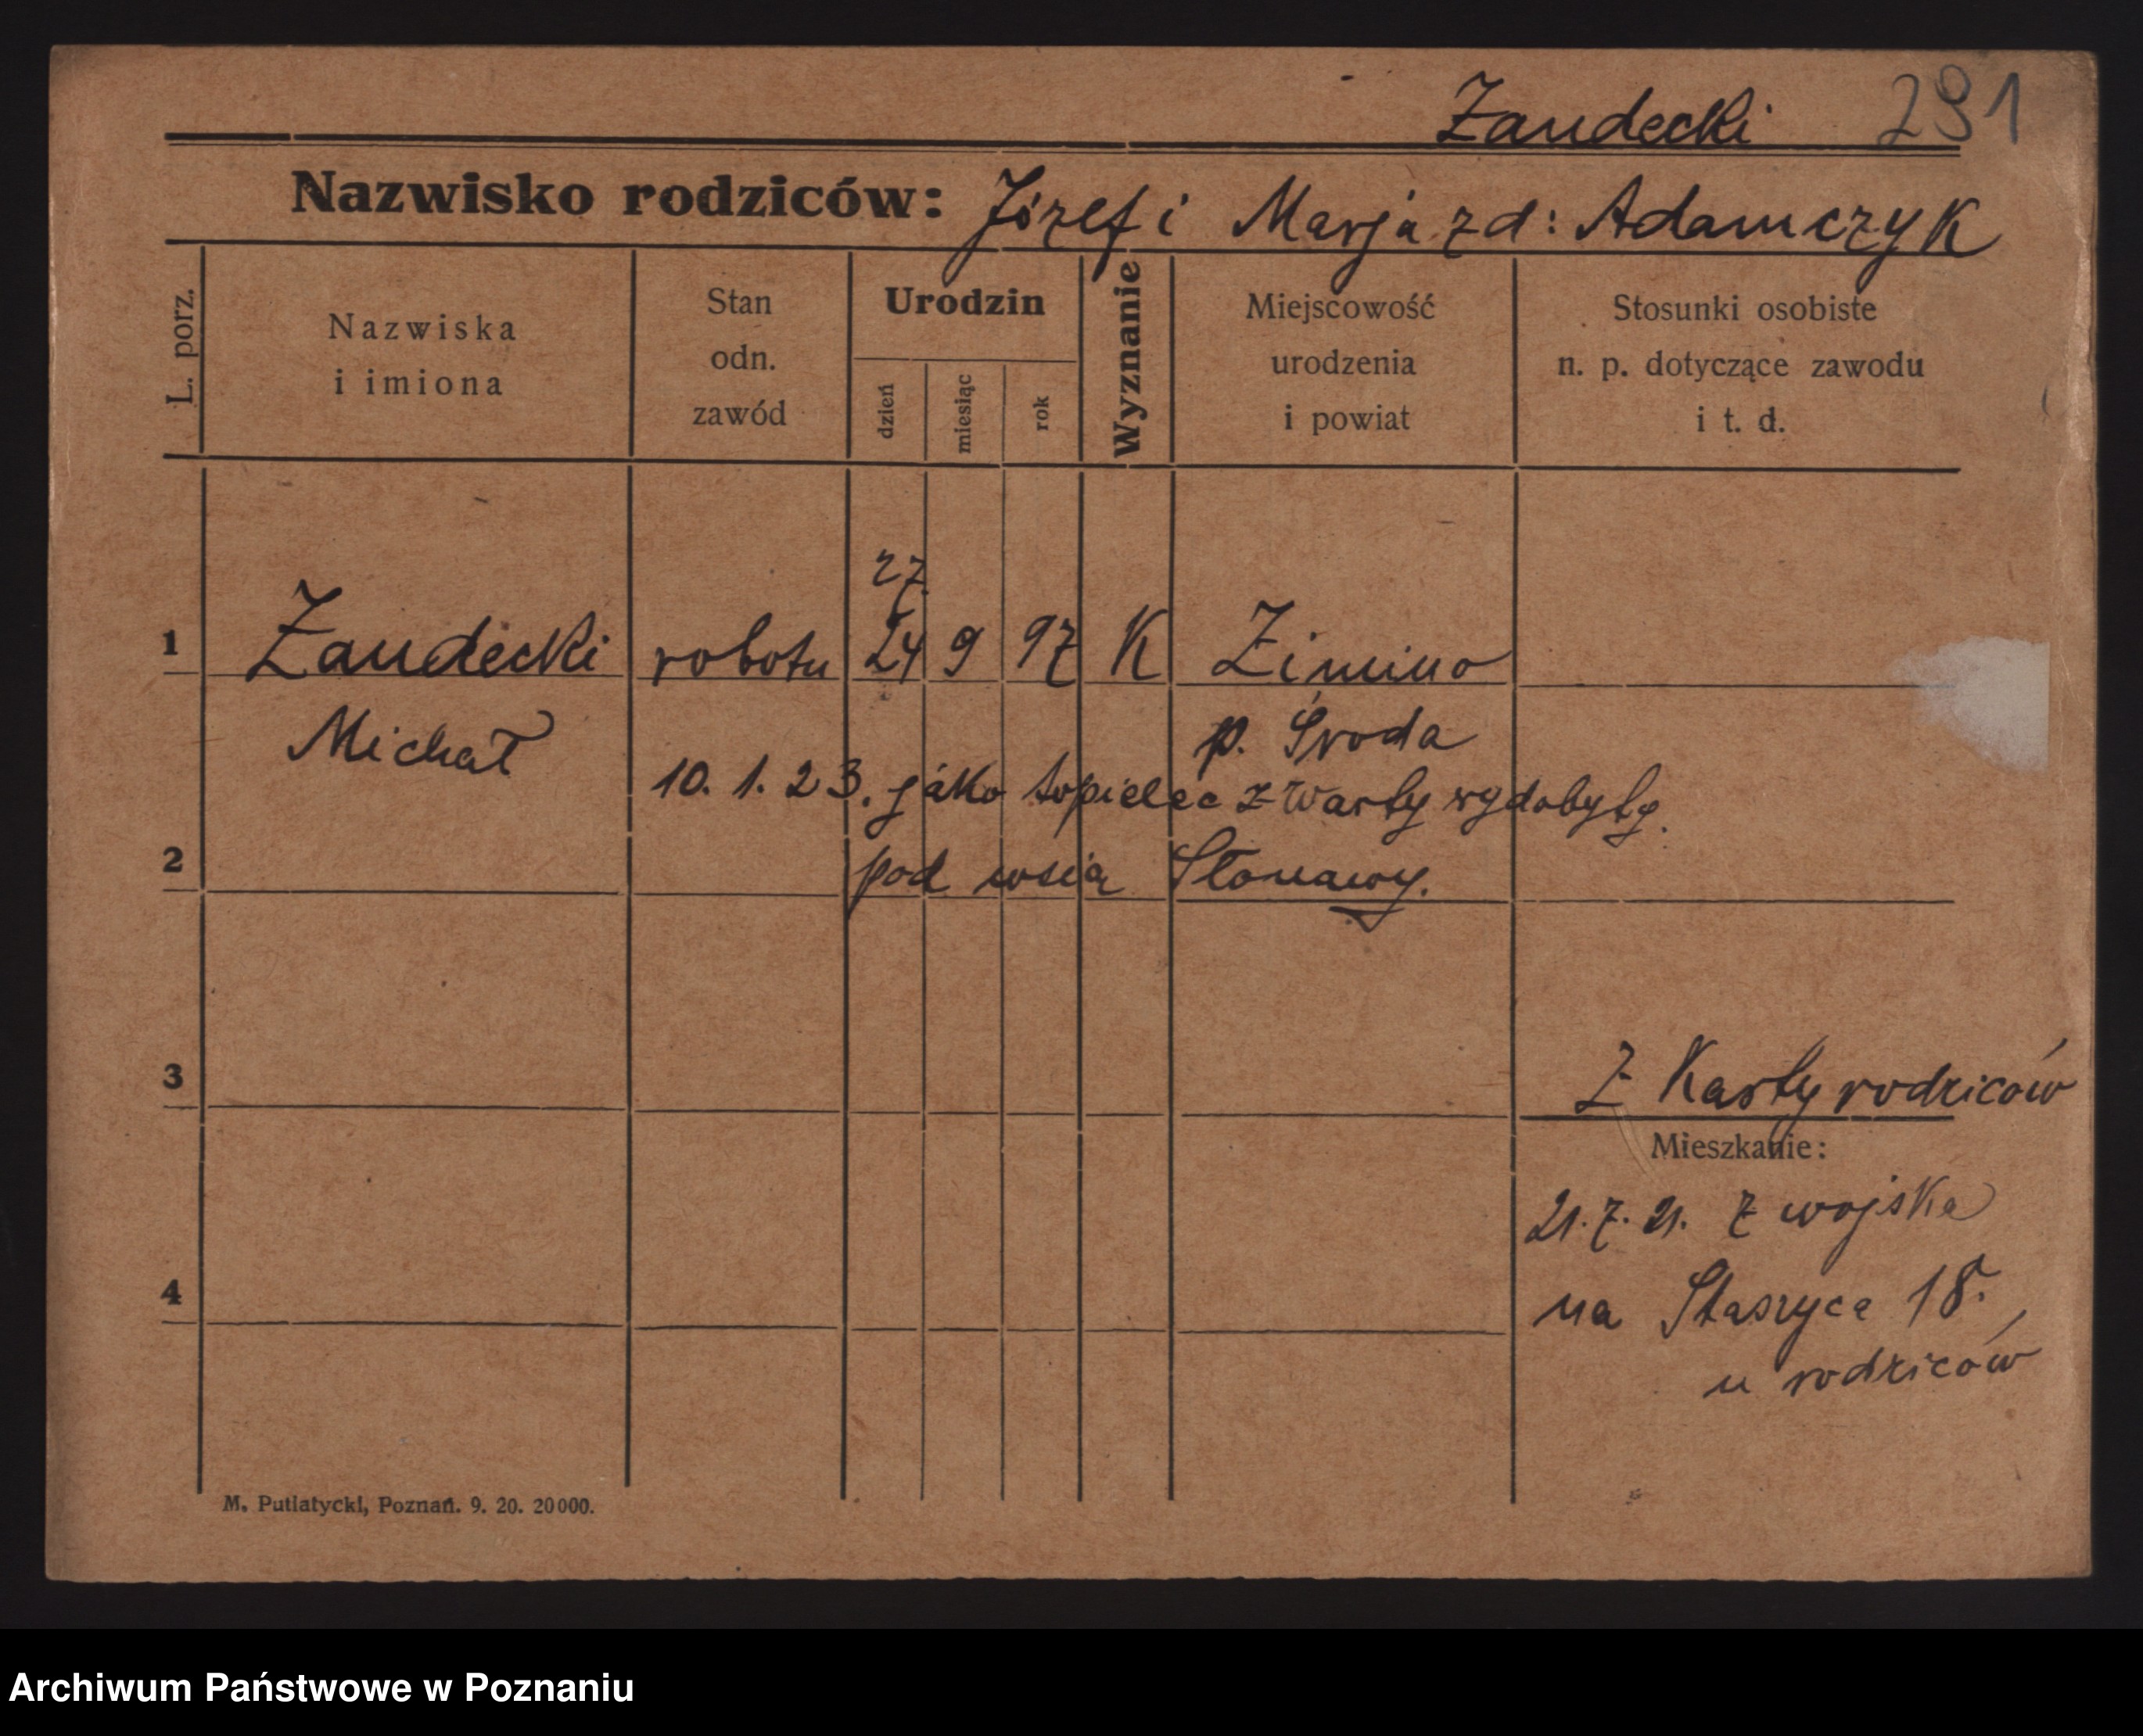 Żaudecki 291
Nazwisko rodziców: Józef i Marja zd: Adamczyk
L. porz.
Nazwiska
i imiona
Stan
odn.
zawód
Urodzin
dzień
miesiąc
rok
Wyznanie
Miejscowość
urodzenia
i powiat
Stosunki osobiste
n. p. dotyczące zawodu
i t. d.
27
1 Żaudecki robotn 24 9 97 K Zimino
Michał p. Środa
10. 1. 23. jako topielec z Warty wydobyty.
2 pod wsią Słonawy.
3 Z Karty rodziców
Mieszkanie:
21. 7. 21. z wojska
na Staszyca 18.
u rodziców
4
M. Putiatycki, Poznań. 9. 20. 20000.
Archiwum Państwowe w Poznaniu